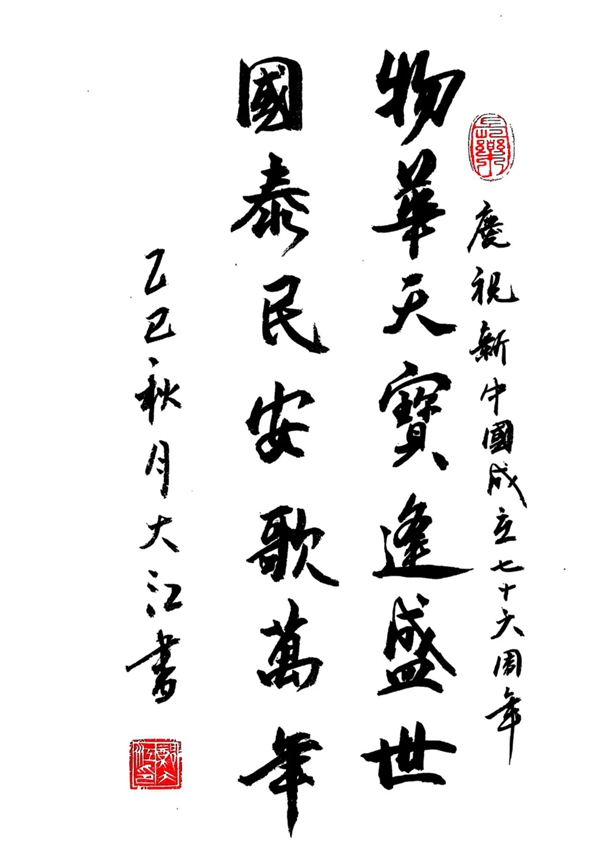 慶祝新中國成立七十六周年
物華天寶逢盛世
國泰民安歌萬年
乙巳秋月大江書